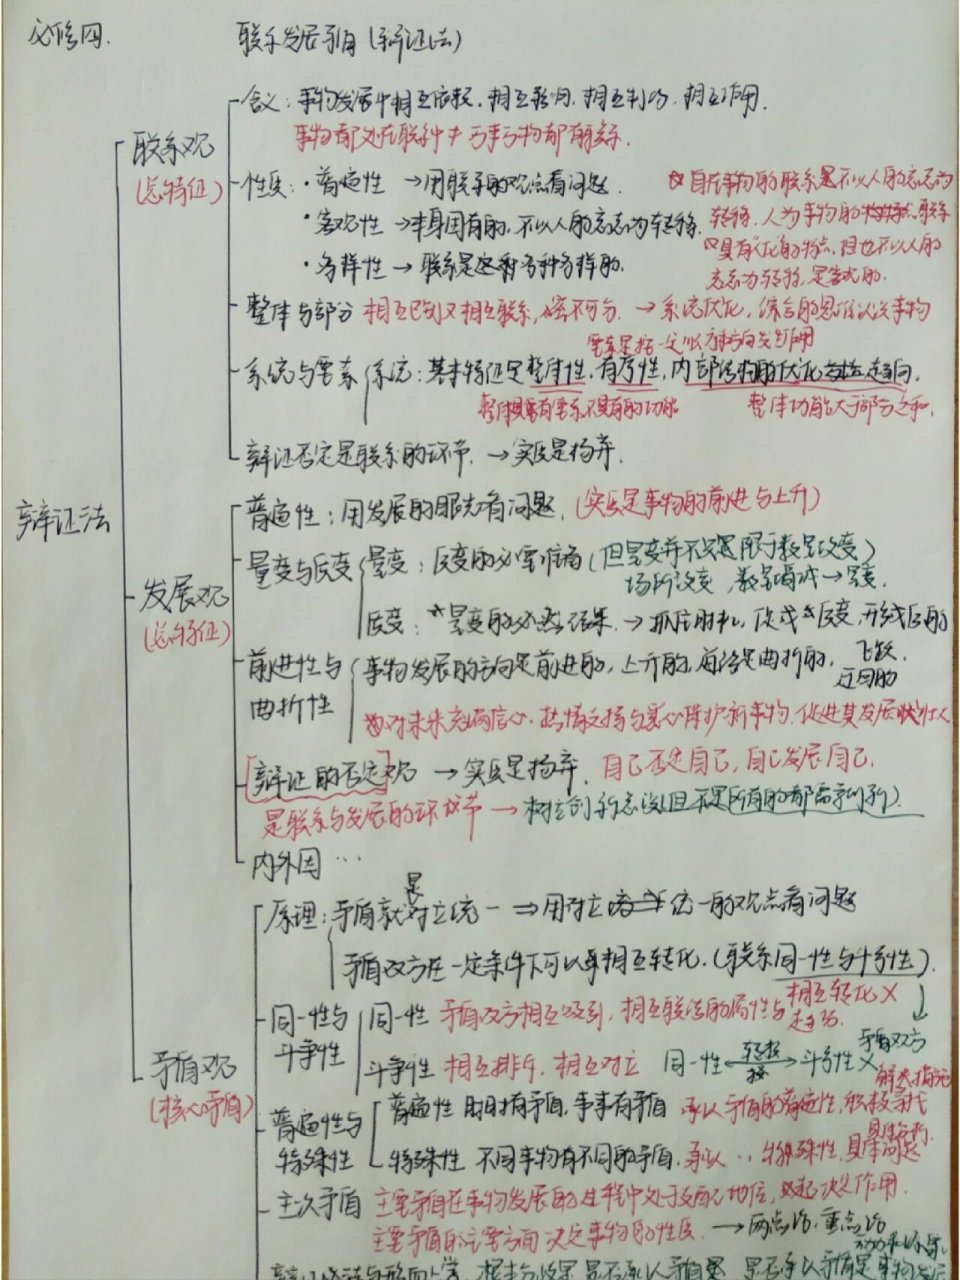 必修四.
联系发展矛盾(辩证法)
含义:事物发展中相互依赖.相互影响.相互制约.相互作用.
事物都处在联系中≠万事万物都有联系.
联系观
(总特征)
性质:·普遍性 →用联系的观点看问题.
·客观性 →本身固有的,不以人的意志为转移.
·多样性 →联系是 多种多样的.
自在事物的联系是不以人的意志为
转移.人为事物的 联系
具有"人化"的特点,但也不以人的
意志为转移,是客观的.
整体与部分 相互区别又相互联系,密不可分.→系统优化,综合的思维认识事物
要素是按一定次序方向发生作用
系统与要素 系统:基本特征是整体性,有序性,内部结构的优化 趋向.
整体具有要素不具有的功能
整体功能大于部分之和.
辩证否定是联系的环节.→实质是扬弃.
辩证法
普遍性:用发展的眼光看问题.(实质是事物的前进与上升)
发展观
(总特征)
量变与质变 量变:质变的必要准备(但量变并不只是限于数量改变)
场所改变,数量增减→量变.
质变:*量变的必然结果.→抓住时机,促成质变,形成质的
飞跃.
前进性与
曲折性
事物发展的方向是前进的,上升的,道路是曲折的,
迂回的
对未来充满信心.热情支持与爱心保护新事物,促进其发展 壮大
辩证的否定观 →实质是扬弃.自己否定自己,自己发展自己.
是联系与发展的环节 →树立创新意识(但不是所有的都需要创新).
内外因…
矛盾观
(核心矛盾)
原理:矛盾就是对立统一 ⇒用对立统一的观点看问题
矛盾双方在一定条件下可以 相互转化.(联系同一性与斗争性).
同一性与
斗争性
同一性 矛盾双方相互吸引,相互联结的属性与
相互转化×
趋势.
斗争性 相互排斥,相互对立 同一性 转换 斗争性×
矛盾双方
普遍性与
特殊性
普遍性 时时有矛盾,事事有矛盾 承认矛盾的普遍性,积极寻找
特殊性 不同事物有不同的矛盾,承认..特殊性,具体问题
具体分析.
主次矛盾 主要矛盾在事物发展的过程中处于支配地位,起决定作用.
主要矛盾的主要方面决定事物的性质.→两点论,重点论
辩证法与形而上学,根本分歧是 是否承认矛盾,是否承认矛盾是事物发展